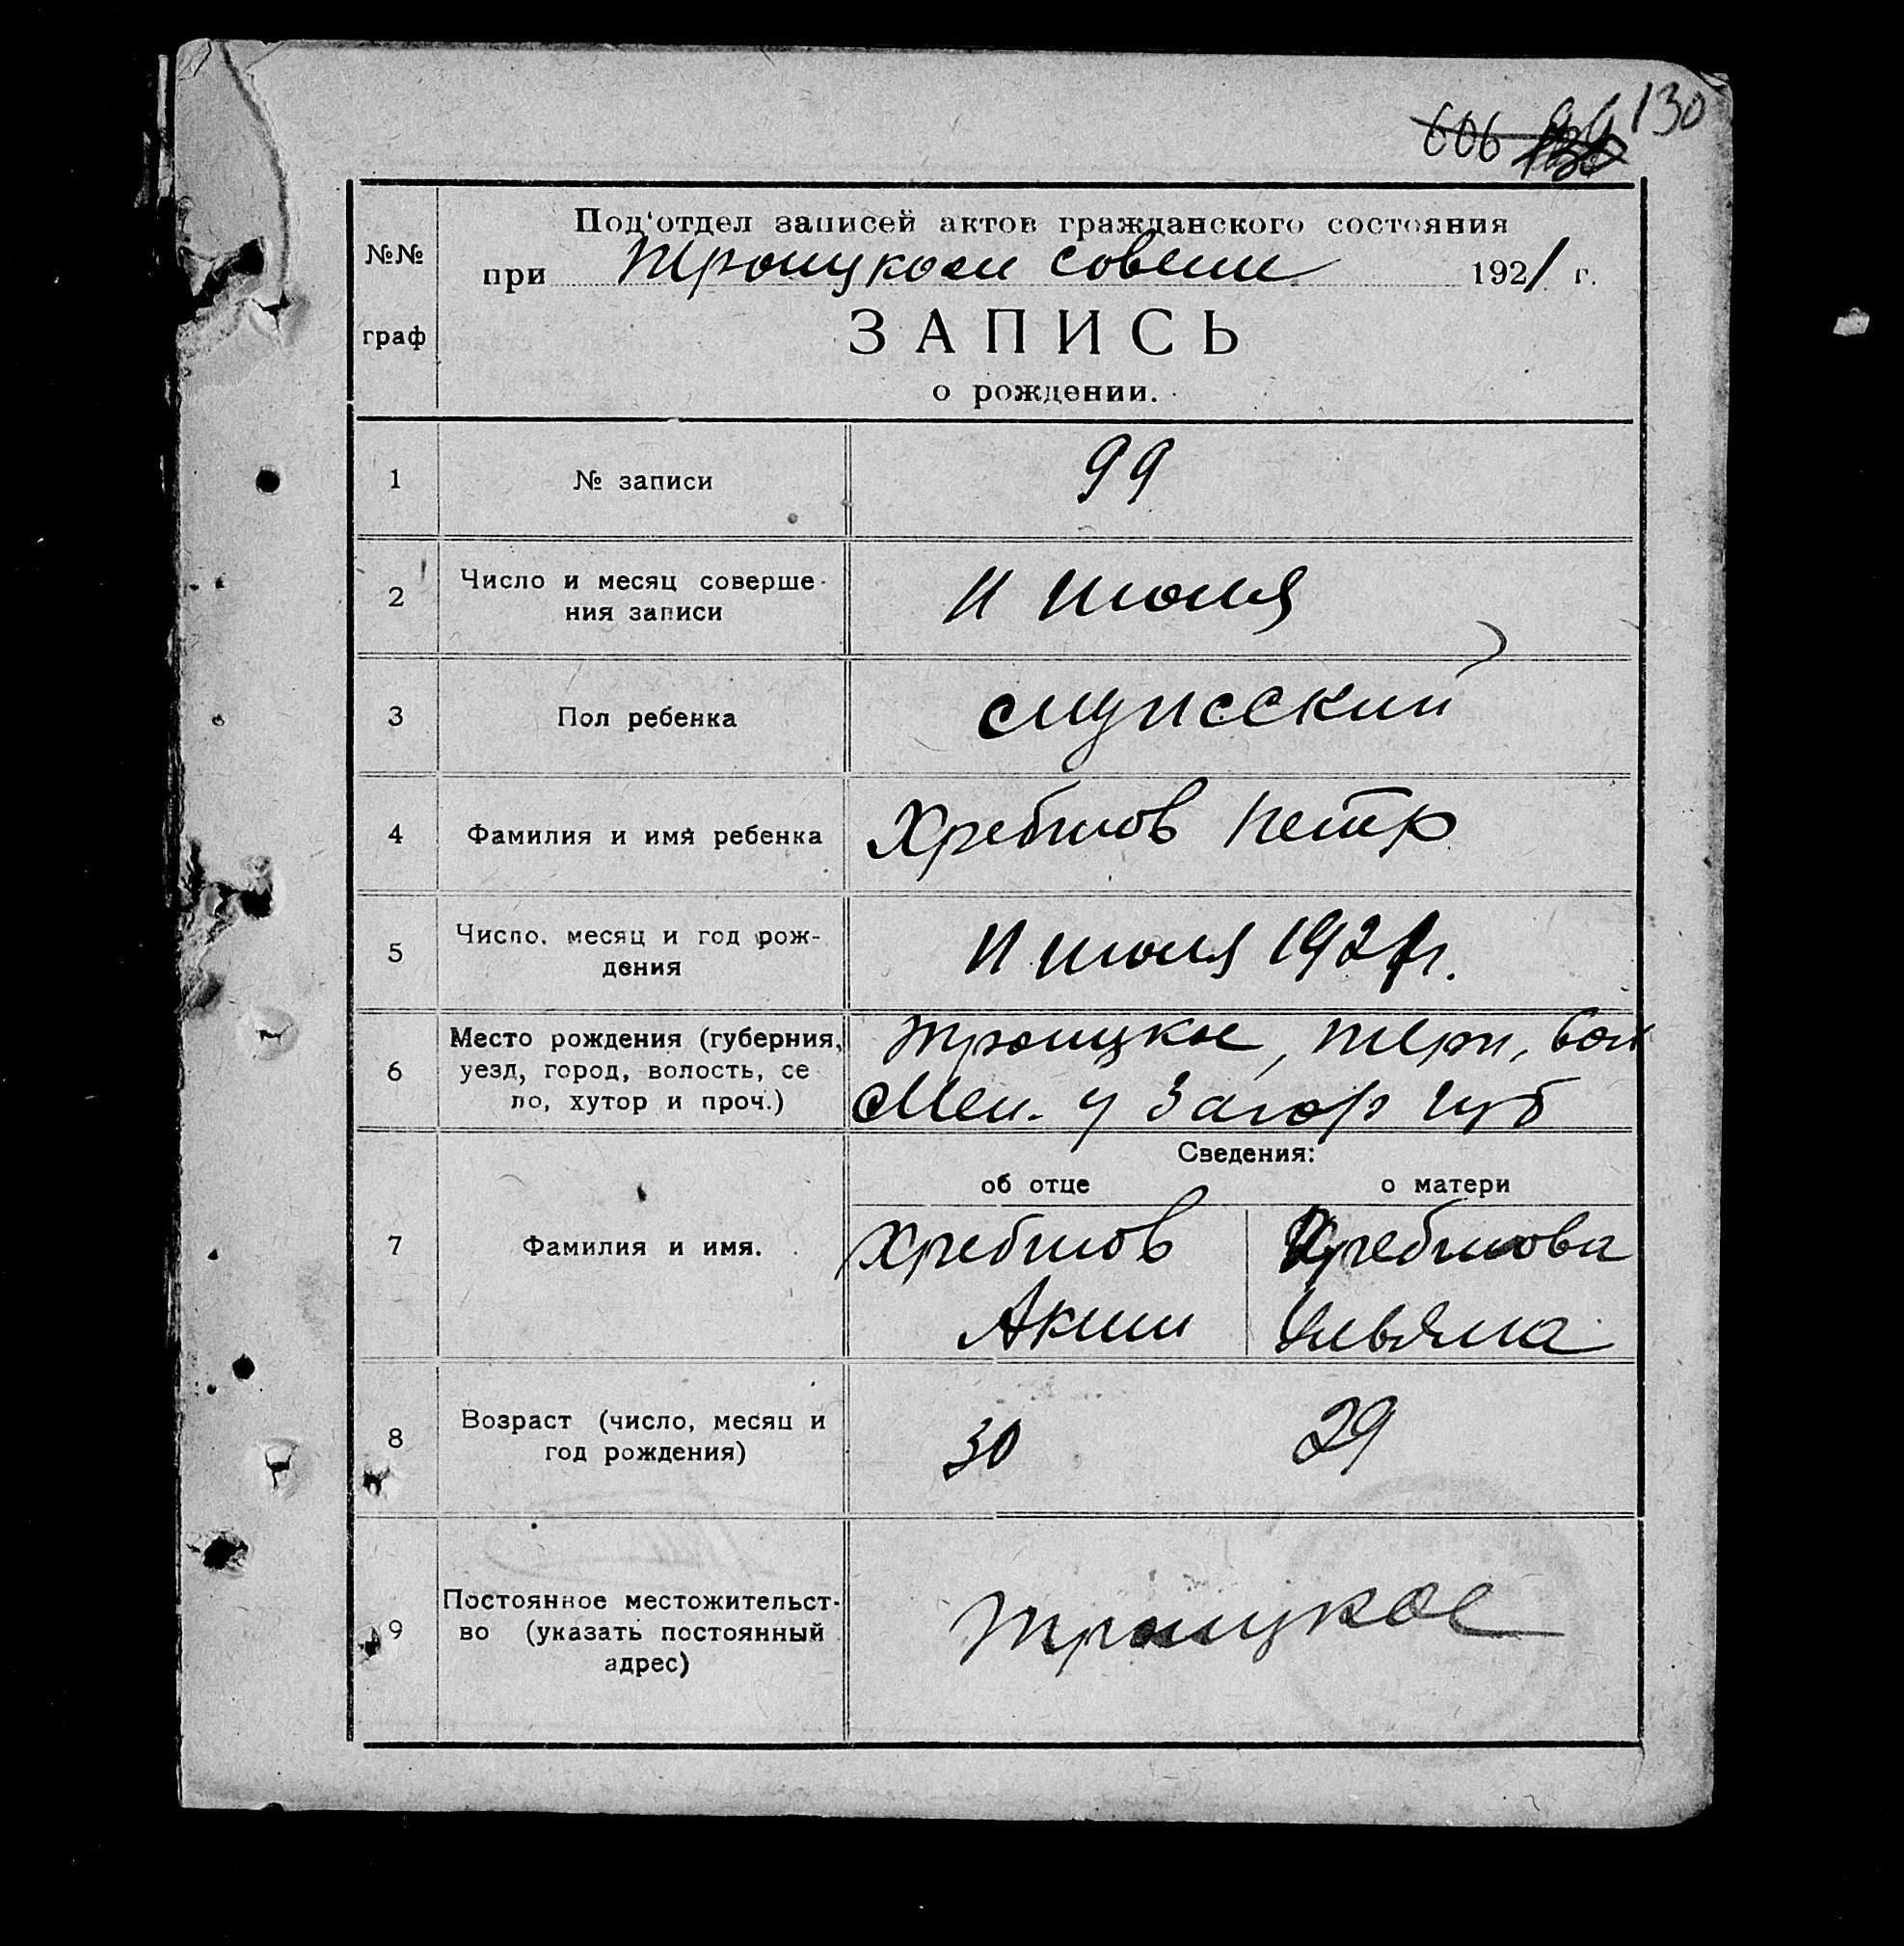 606 130
№№
граф
Под'отдел записей актов гражданского состояния
при Троицком совете 1921 г.
ЗАПИСЬ
о рождении.
1 № записи 99
2 Число и месяц соверше-
ния записи 11 июля
3 Пол ребенка мужский
4 Фамилия и имя ребенка Хребтов Петр
5 Число, месяц и год рож-
дения 11 июля 1921 г.
6 Место рождения (губерния,
уезд, город, волость, се
ло, хутор и проч.)
Троицкое, Терп, вол
Мел. у Запор губ
Сведения:
об отце о матери
7 Фамилия и имя. Хребтов Хребтова
Аким Ульяна
8 Возраст (число, месяц и
год рождения) 30 29
9 Постоянное местожительст-
во (указать постоянный
адрес)
Троицкое